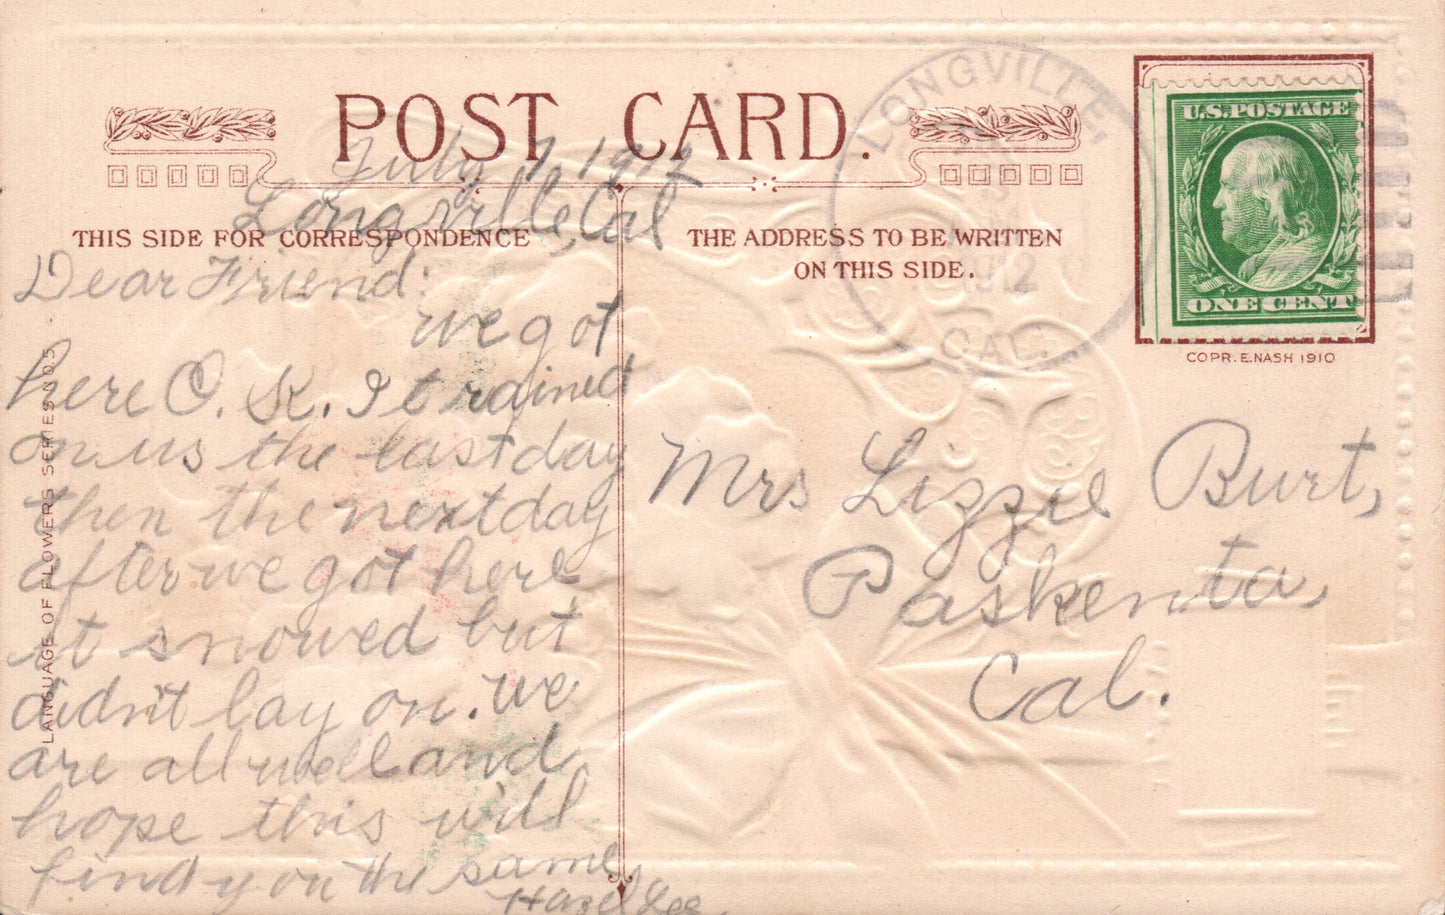 POST CARD.
July 7, 1912
Longville, Cal
THIS SIDE FOR CORRESPONDENCE
Dear Friend:
we got
here O. K. It rained
on us the last day
then the next day
after we got here
it snowed but
didn't lay on. we
are all well and
hope this will
find you the same,
Hazel Lee.
LANGUAGE OF FLOWERS SERIES NO 5
THE ADDRESS TO BE WRITTEN
ON THIS SIDE.
LONGVILLE,
1912
CAL.
U.S. POSTAGE
ONE CENT
COPR. E. NASH 1910
Mrs Lizzie Burt,
Paskenta,
Cal.